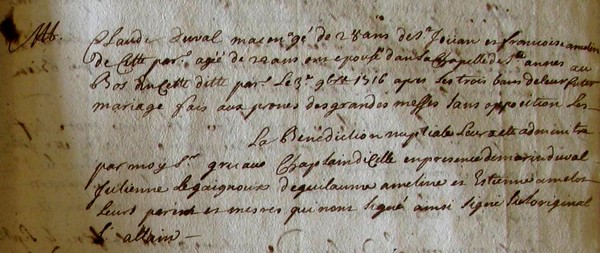 Claude duval maçon agé de 28 ans de St Jouan et francoise ameline
de Cette par. agée de 22 ans ont epousé dans la Chapelle de Ste annes au
Bos en Cette ditte par. Le 3e 9bre 1716 apres les trois bans de leur futur
mariage fais aux prones des grandes messes sans opposition
La Benediction nuptiale Leur a esté administrée
par moy Chaplain dicelle en presence de marin duval
Julienne Legaignoux de guilaume ameline et Estienne amelot
Leurs perres et merres qui n'ont signé ainsi signé sur Loriginal
allain